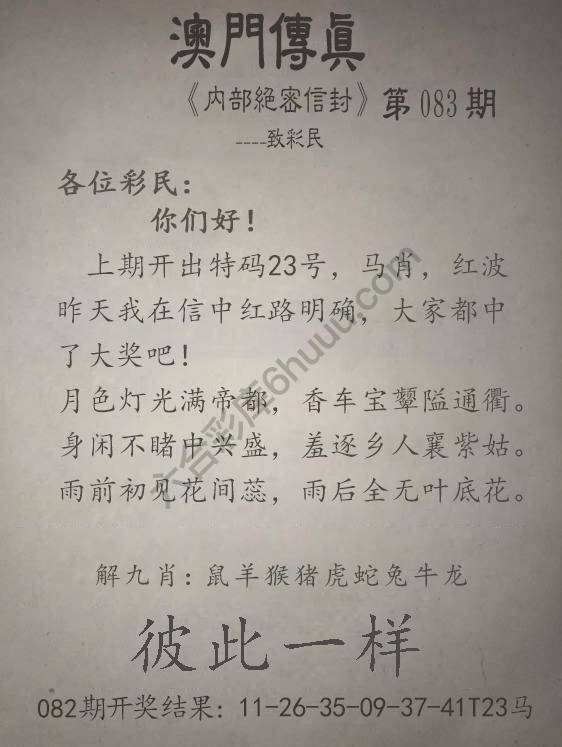 澳門傳真
《内部絕密信封》第083期
----致彩民
各位彩民：
你们好！
上期开出特码23号，马肖，红波
昨天我在信中红路明确，大家都中
了大奖吧！
月色灯光满帝都，香车宝辇隘通衢。
身闲不睹中兴盛，羞逐乡人襄紫姑。
雨前初见花间蕊，雨后全无叶底花。
六合彩库6huuu.com
解九肖：鼠羊猴猪虎蛇兔牛龙
彼此一样
082期开奖结果：11-26-35-09-37-41T23马